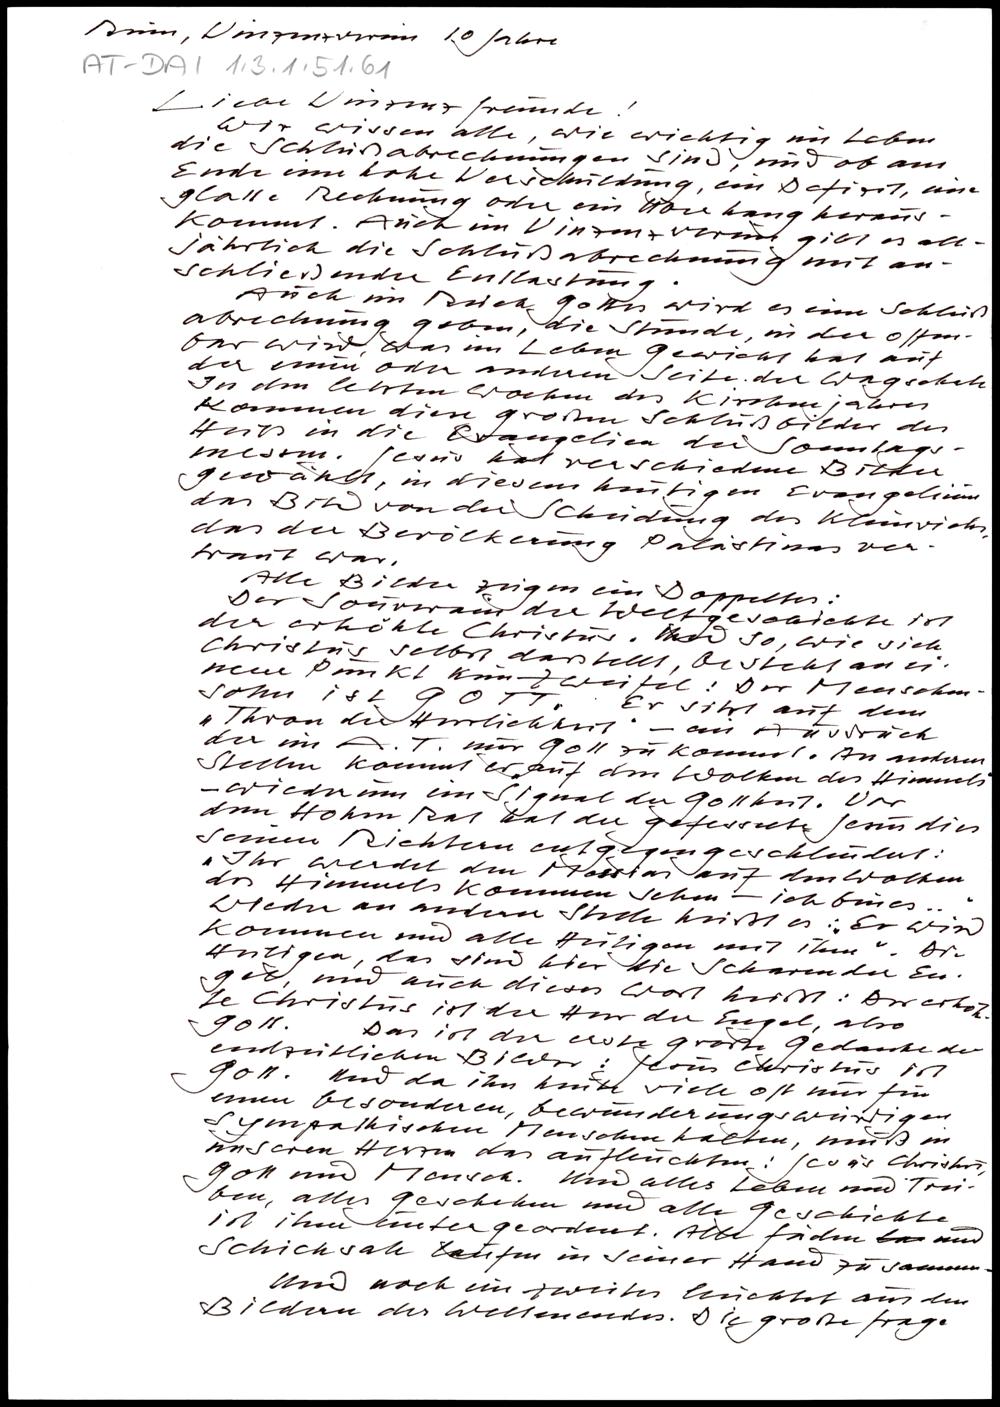 Arzl, Vinzenzverein 10 Jahre
AT-DAI 1.3.1.51.61
Liebe Vinzenzfreunde!
Wir wissen alle, wie wichtig im Leben
die Schlußabrechnungen sind, und ob am
Ende eine hohe Verschuldung, ein Defizit, eine
glatte Rechnung oder ein Überhang heraus-
kommt. Auch im Vinzenzverein gibt es all-
jährlich die Schlußabrechnung mit an-
schließender Entlastung.
Auch im Reich Gottes wird es eine Schluß
abrechnung geben, die Stunde, in der offen-
bar wird, was im Leben Gewicht hat auf
der einen oder anderen Seite der Wagschale
In den letzten Wochen des Kirchenjahres
kommen diese großen Schlußbilder des
Heils in die Evangelien der Sonntags-
messen. Jesus hat verschiedene Bilder
gewählt, in diesem heutigen Evangelium
das Bild von der Scheidung des Kleinviehs,
das der Bevölkerung Palästinas ver-
traut war.
Alle Bilder zeigen ein Doppeltes:
Der Souverain der Weltgeschichte ist
der erhöhte Christus. Und so, wie sich
Christus selbst darstellt, besteht an ei-
nem Punkt kein Zweifel: Der Menschen-
sohn ist GOTT. Er sitzt auf dem
"Thron der Herrlichkeit" – ein Ausdruck
der im A. T. nur Gott zukommt. An anderen
Stellen kommt er "auf den Wolken des Himmels"
– wiederum ein Signal der Gottheit. Vor
dem Hohen Rat hat der gefesselte Jesus dies
seinen Richtern entgegengeschleudert:
"Ihr werdet den Messias auf den Wolken
des Himmels kommen sehen – ich bin es.."
Wieder an anderer Stelle heißt es: "Er wird
kommen und alle Heiligen mit ihm". Die
Heiligen, das sind hier die Scharen der En-
gel, und auch dieses Wort heißt: Der erhöh-
te Christus ist der Herr der Engel, also
Gott. Das ist der erste große Gedanke der
endzeitlichen Bilder: Jesus Christus ist
Gott. Und da ihn heute viele oft nur für
einen besonderen, bewunderungswürdigen
sympathischen Menschen halten, muß in
unseren Herzen das aufleuchten: Jesus Christus,
Gott und Mensch. Und alles Leben und Trei-
ben, alles Geschehen und alle Geschichte
ist ihm untergeordnet. Alle Fäden und
Schicksale laufen in seiner Hand zusammen
Und noch ein zweites leuchtet aus den
Bildern des Weltenendes. Die große Frage